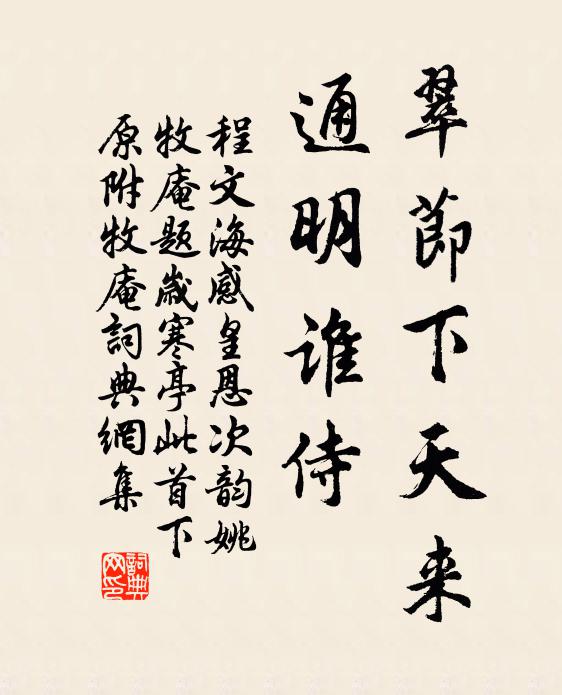 翠節下天来
通明誰侍
程文海感皇恩次韵姚
牧庵题歲寒亭此首下
原附牧庵詞典網集
詞典网印